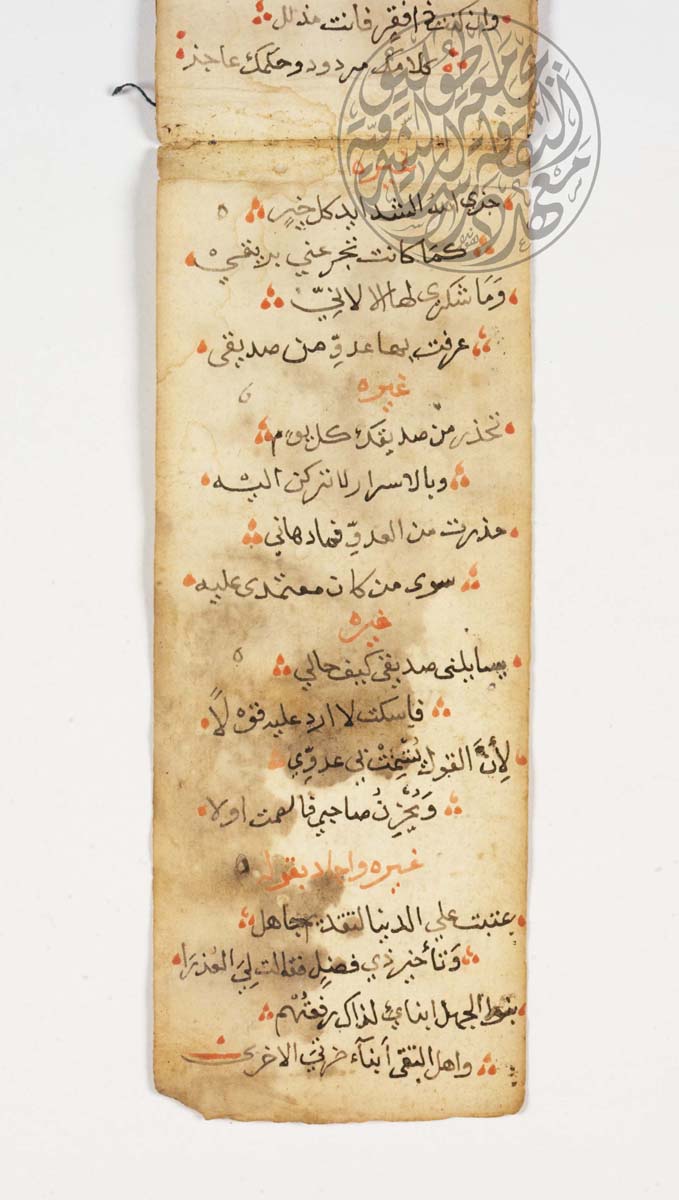 وان كنت ذا فقر فانت مذلل
كلامك مردود وحكمك عاجز
غيره
جزى الله الشدايد كل خير
كما كانت تجرعني بريقي
وَمَا شكرى لها الا لانيّ
عرفت بها عدوّ من صديقى
غيره
تحذر من صديقك كل يوم
وبالاسرار لا تركن اليه
حذرت من العدوّ فمادهاني
سوى من كان معتمدى عليه
غيره
يسايلنى صديقى كيف حالي
فاسكت لا ارد عليه قوْلاً
لِأَنَّ القول يُشمِتْ بي عدوِّي
وَيُحْزِنُ صاحبي فالصمت اولا
غيره واجاد بقوله
عتبت علي الدنيا لتقديم جاهل
وَتأخير ذي فضلٍ فقالت لِيَ العُذرَا
بنوا الجهل ابناءي لذاك رفعتُهُم
واهل التقى أبنآء ضرتي الاخرى